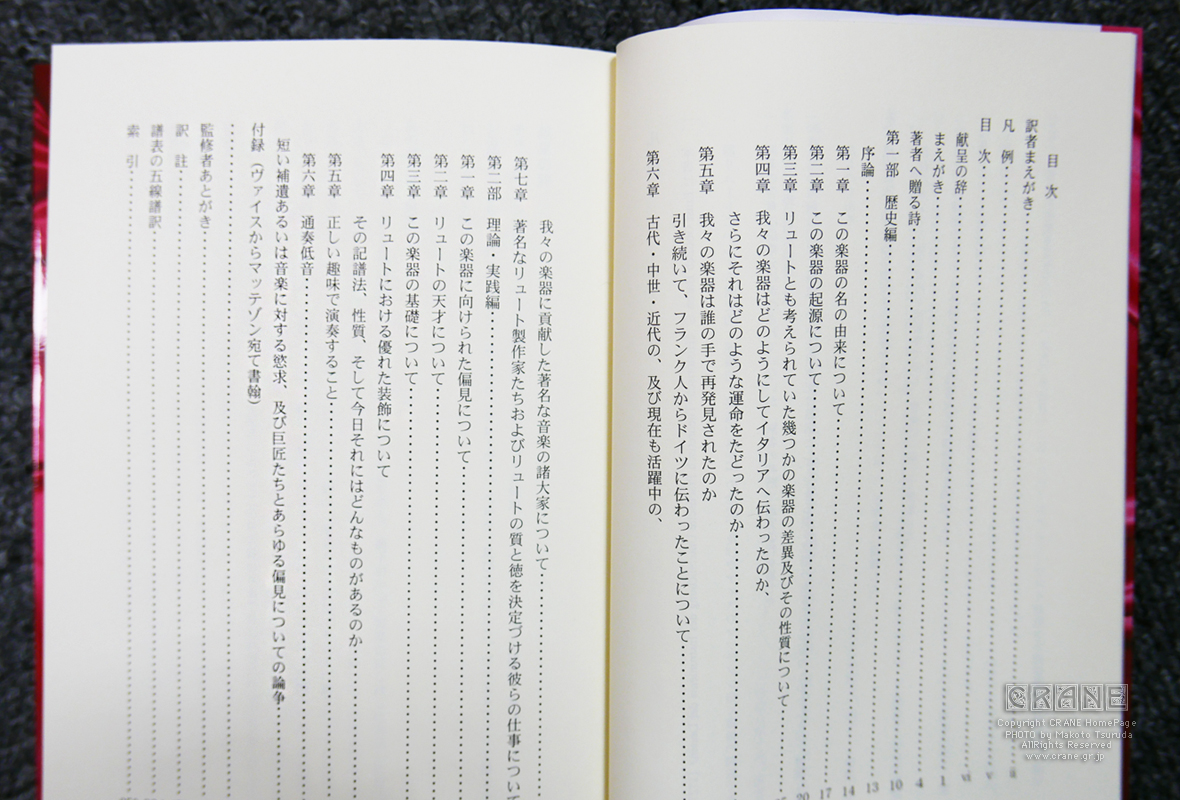 目 次
訳者まえがき
凡 例
目 次
献呈の辞
まえがき
著者へ贈る詩
第一部 歴史編
序論
第一章 この楽器の名の由来について
第二章 この楽器の起源について
第三章 リュートとも考えられていた幾つかの楽器の差異及びその性質について
第四章 我々の楽器はどのようにしてイタリアへ伝わったのか、
さらにそれはどのような運命をたどったのか
第五章 我々の楽器は誰の手で再発見されたのか
引き続いて、フランク人からドイツに伝わったことについて
第六章 古代・中世・近代の、及び現在も活躍中の、
ii
v
vi
1
4
10
13
14
17
20
我々の楽器に貢献した著名な音楽の諸大家について
第七章 著名なリュート製作家たちおよびリュートの質と徳を決定づける彼らの仕事につい
第二部 理論・実践編
第一章 この楽器に向けられた偏見について
第二章 リュートの天才について
第三章 この楽器の基礎について
第四章 リュートにおける優れた装飾について
その記譜法、性質、そして今日それにはどんなものがあるのか
第五章 正しい趣味で演奏すること
第六章 通奏低音
短い補遺あるいは音楽に対する慾求、及び巨匠たちとあらゆる偏見についての論争
付録(ヴァイスからマッテゾン宛て書翰)
監修者あとがき
訳 註
譜表の五線譜訳
索 引
CRANE
Copyright CRANE HomePage
PHOTO by Makoto Tsuruda
AllRights Reserved
www.crane.gr.jp